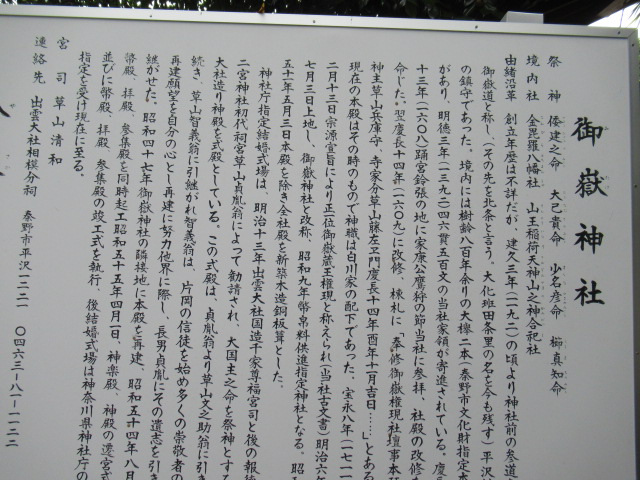 御嶽神社
祭神 倭建之命 大己貴命 少名彦命 櫛真知命
境内社 金毘羅八幡社 山王稲荷天神山之神合祀社
由緒沿革 創立年歴は不詳だが、建久三年(一一九二)の頃より神社前の参道
御嶽道と称し、(その先を北条と言う。大化班田条里の名を今も残す)平沢
の鎮守であった。境内には樹齢八百年余りの大欅二本(秦野市文化財指定
があり、明徳三年(一三九二)四六貫五百文の当社家領が寄進されている。慶長
十三年(一六〇八)踊宮鈴張の地に家康公鷹狩の節当社に参拝、社殿の改修を
命じた。翌慶長十四年(一六〇九)に改修、棟札に「奉修御嶽権現社壇事本
神主草山兵庫守、寺家分草山藤左ヱ門慶長十四年酉年十一月吉日……」とある
現在の本殿はその時のもので神職は白川家の配下であった。宝永八年(一七一一
二月十三日宗源宣旨により正一位御嶽蔵王権現と称えられ(当社古文書)明治六年
七月三日上地し、御嶽神社と改称、昭和九年幣帛料供進指定神社となる。昭和
五十一年五月三日本殿を除き全社殿を新築木造銅板葺とした。
神社庁指定結婚式場は、明治十三年出雲大社国造千家尊福宮司と後の報徳
二宮神社初代祠宮草山貞胤翁によって勧請され、大国主之命を祭神とする
大社造り神殿を式殿としている。この式殿は、貞胤翁より草山文之助翁に引き
続き、草山智義翁に引継がれ智義翁は、片岡の信徒を始め多くの崇敬者の
再建願望を自分の心とし再建に努力他界に際し、長男貞胤にその遺志を引き
継がせた。昭和四十七年御嶽神社の隣接地に本殿を再建、昭和五十四年八月
幣殿、拝殿、参集殿を同時起工昭和五十五年四月一日、神楽殿、神殿の遷宮式
並びに幣殿、拝殿、参集殿の竣工式を執行、後結婚式場は神奈川県神社庁の
指定を受け現在に至る。
宮司 草山清和
連絡先 出雲大社相模分祠 秦野市平沢一二二一 〇四六三-八一-一一二二